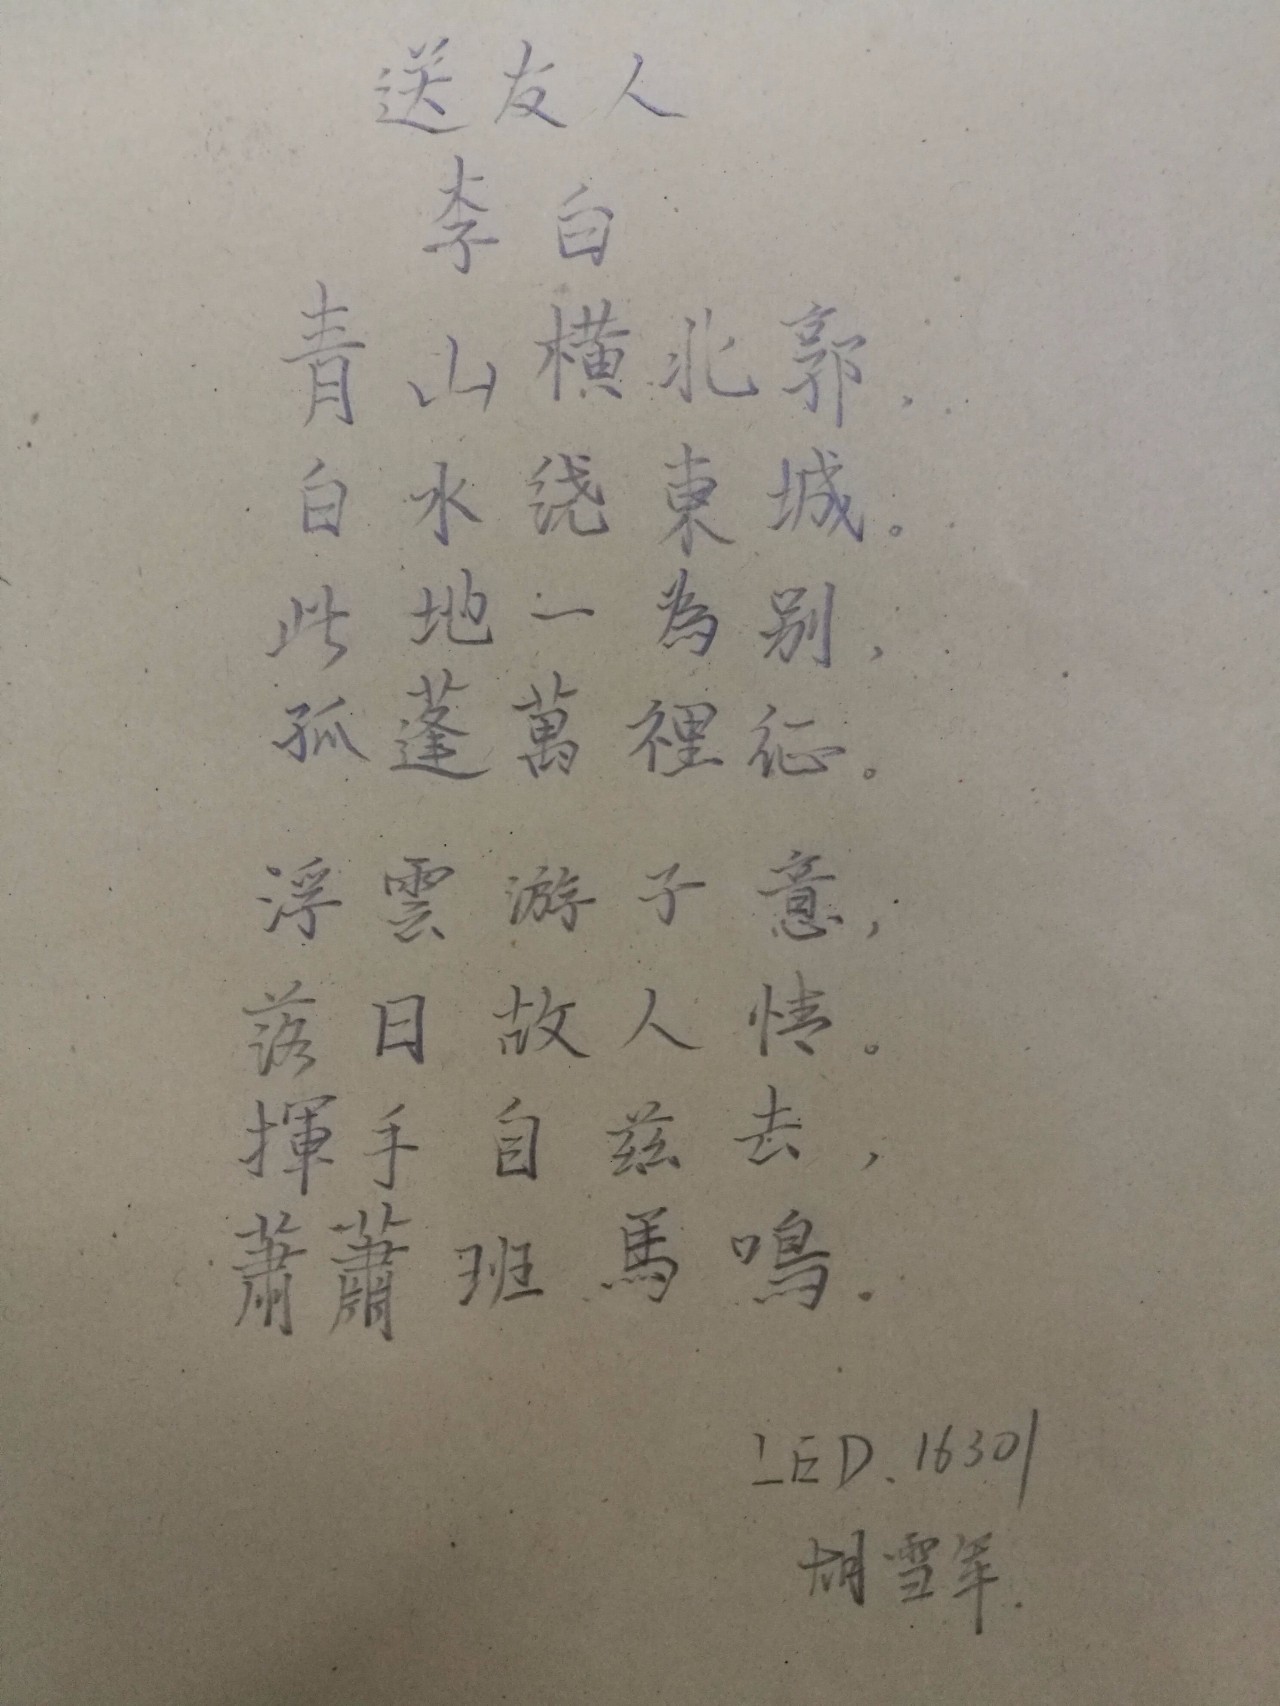 送友人
李白
青山横北郭，
白水绕東城。
此地一為别，
孤蓬萬裡征。
浮雲游子意，
落日故人情。
揮手自兹去，
蕭蕭班馬鳴。
LED.16301
胡雪年.